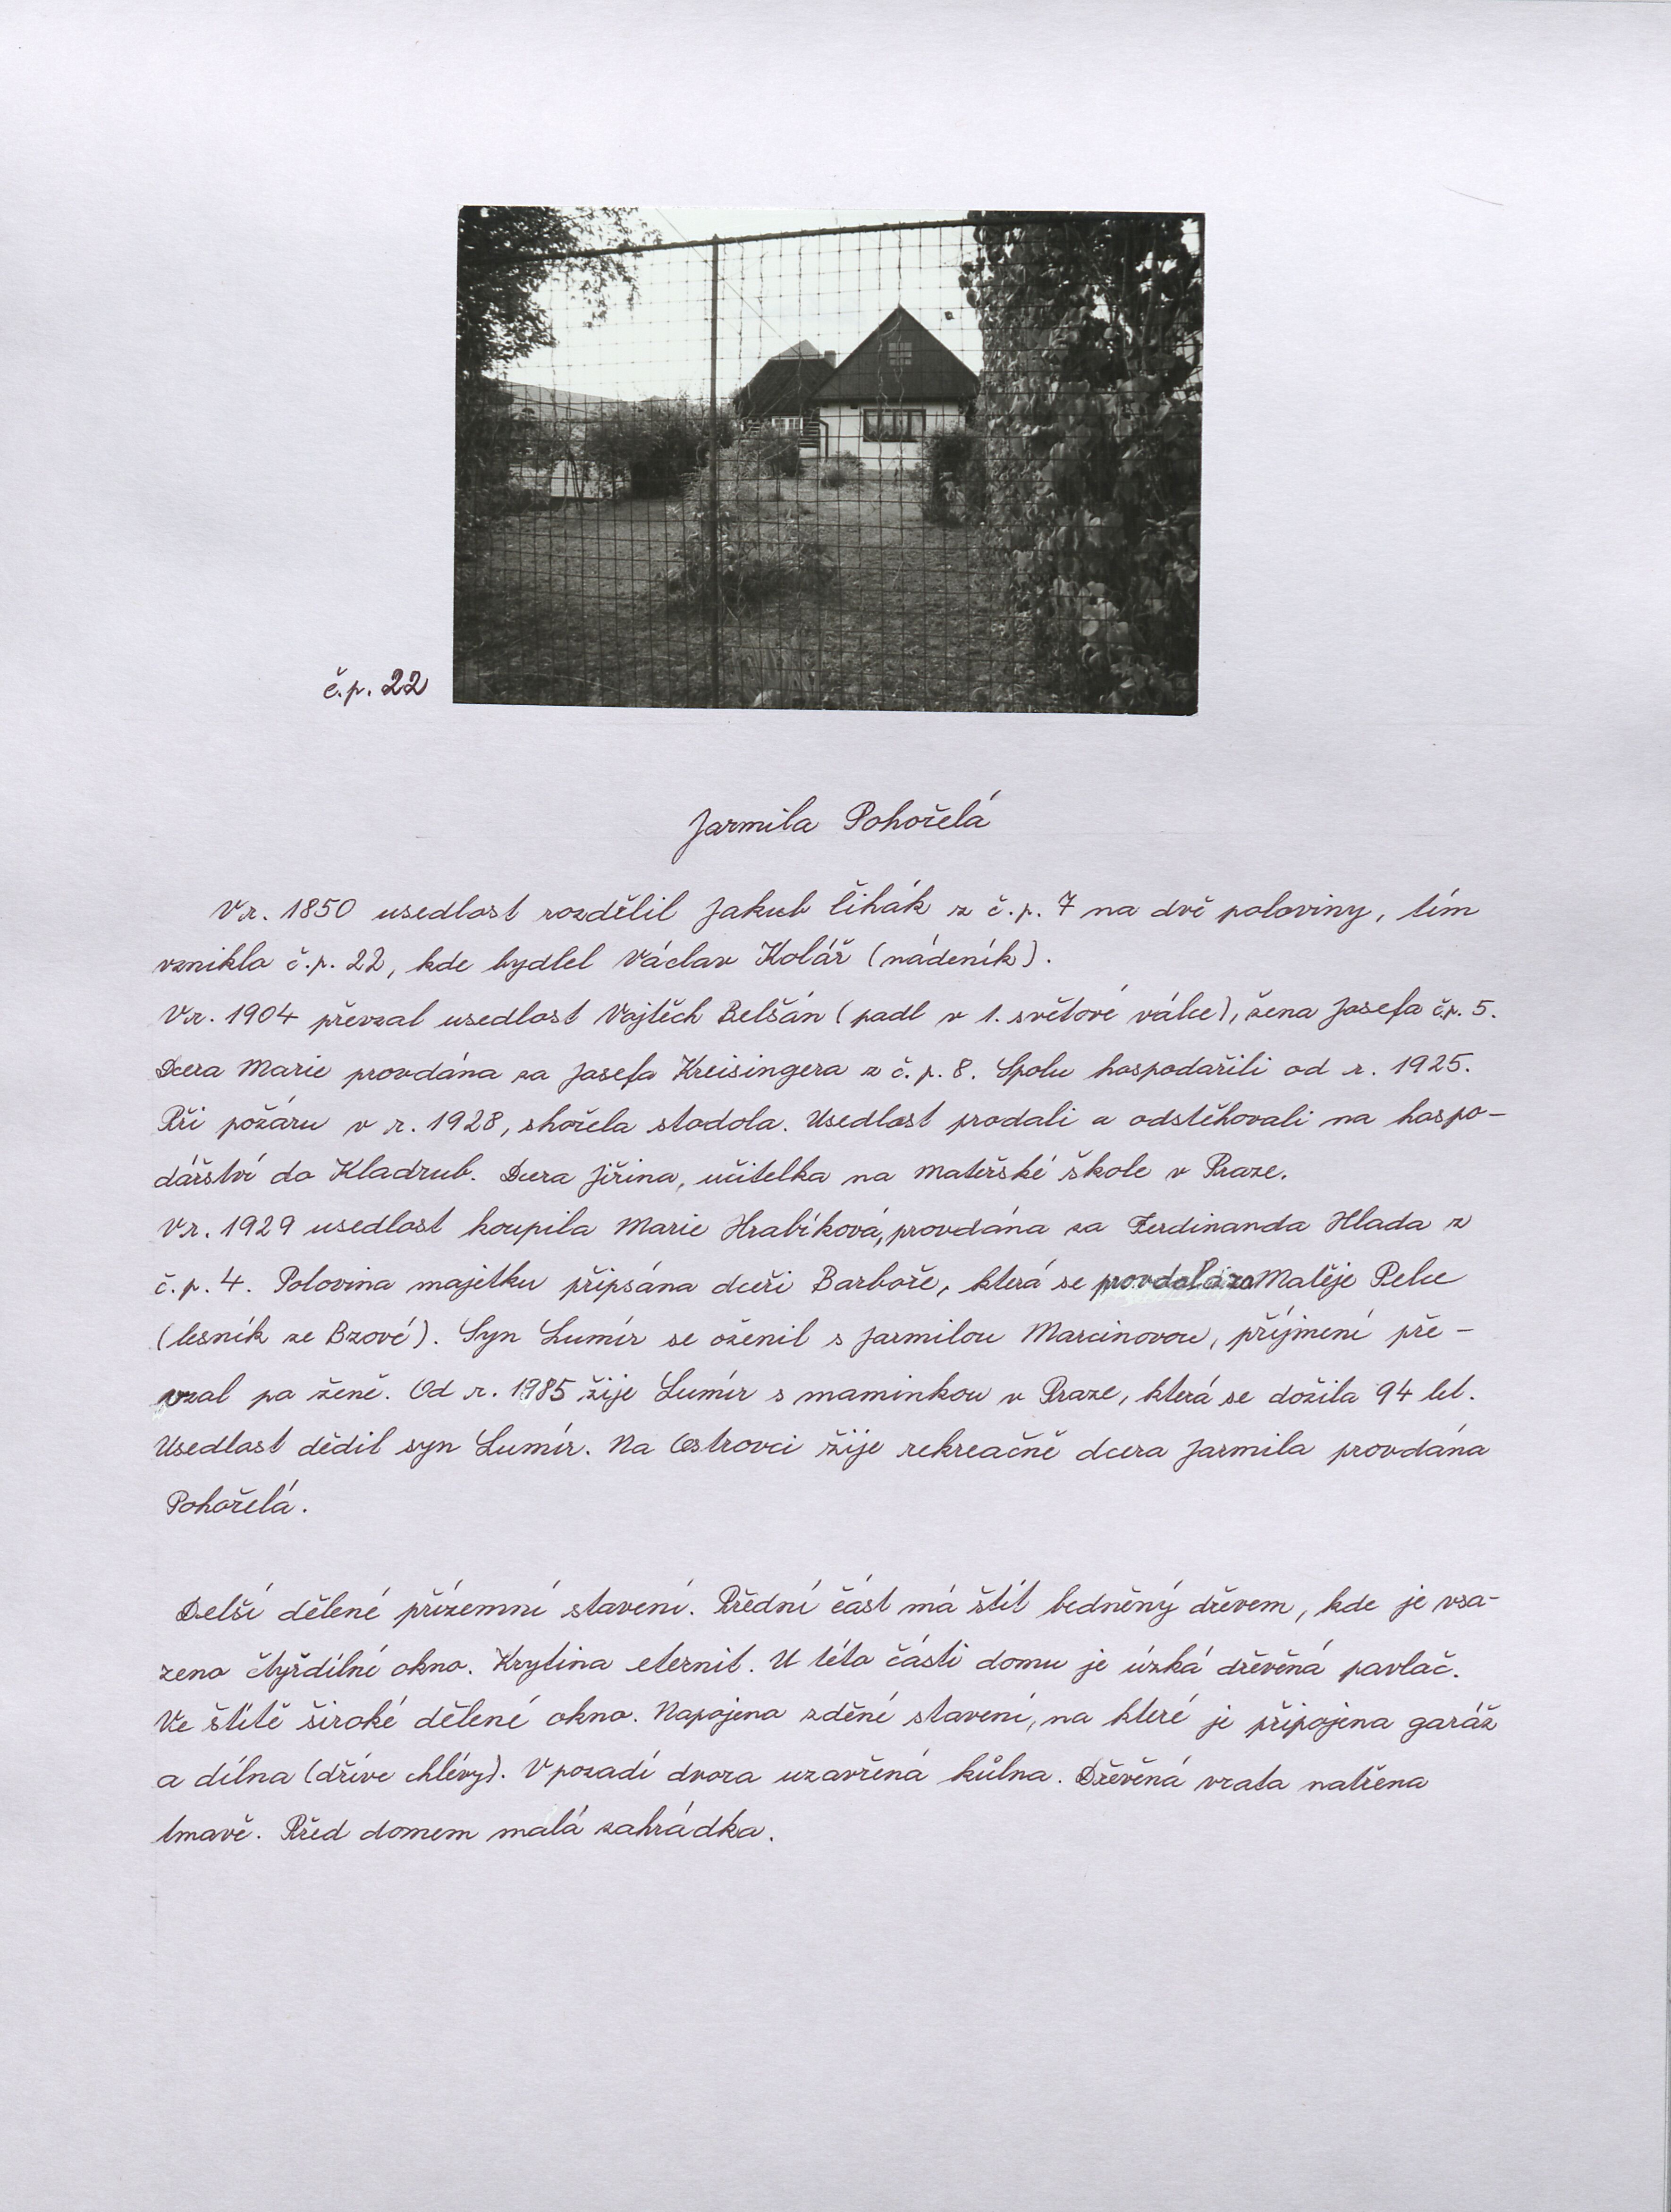 č.p. 22
Jarmila Pohořelá
V r. 1850 usedlost rozdělil Jakub Čihák z č.p. 7 na dvě poloviny, tím
vznikla č.p. 22, kde bydlel Václav Kolář (nádeník).
V r. 1904 převzal usedlost Vojtěch Belšán (padl v 1. světové válce), žena Josefa č.p. 5.
Dcera Marie provdána za Josefa Kreisingera z č.p. 8. Spolu hospodařili od r. 1925.
Při požáru v r. 1928, shořela stodola. Usedlost prodali a odstěhovali na hospo-
dářství do Kladrub. Dcera Jiřina, učitelka na mateřské škole v Praze.
V r. 1929 usedlost koupila Marie Hrabíková, provdána za Ferdinanda Hlada z
č.p. 4. Polovina majetku připsána dceři Barboře, která se provdala za Matěje Pelce
(lesník ze Bzové). Syn Lumír se oženil s Jarmilou Marcinovou, příjmení pře-
vzal po ženě. Od r. 1985 žije Lumír s maminkou v Praze, která se dožila 94 let.
Usedlost dědil syn Lumír. Na Ostrovci žije rekreačně dcera Jarmila provdána
Pohořelá.
Delší dělené přízemní stavení. Přední část má štít bedněný dřevem, kde je vsa-
zeno čtyřdílné okno. Krytina eternit. U této části domu je úzká dřevěná pavlač.
Ve štítě široké dělené okno. Napojeno zděné stavení, na které je připojena garáž
a dílna (dříve chlévy). V pozadí dvora uzavřená kůlna. Dřevěná vrata natřena
tmavě. Před domem malá zahrádka.